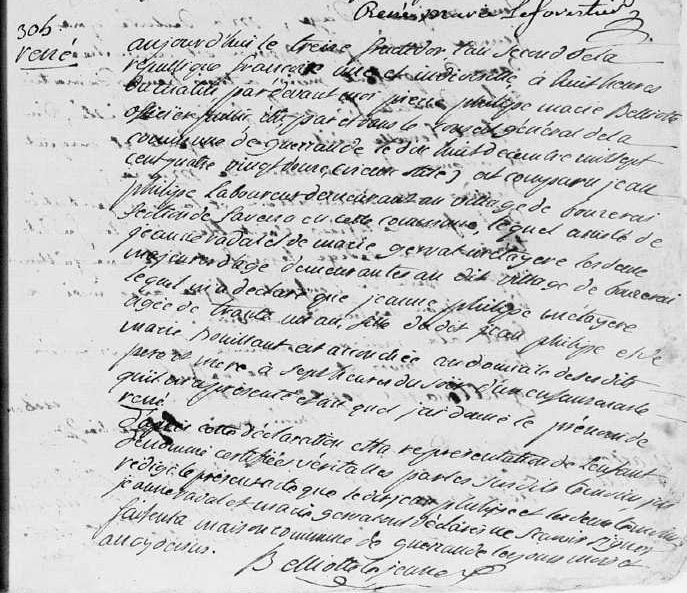 René
306
rené
aujourd'huile treise fructidor l'an second de la
république françoise une et indivisible, à huit heures
du matin par devant moi pierre philippe marie Belliotte
officier public élu par et dans le conseil général de la
commune de guerrande le dix huit decembre mil sept
cent quatre vingt douze (vieux stile) est comparu jean
philippe laboureur demeurant au village de
section de saveno en cette commune, lequel assisté de
jeanne radal et de marie gervat metayere les deux
majeures d'age demeurantes au dit village de
lequel m'a declaré que jeanne philippe metayere
agée de trante un an, fille du dit jean philippe et de
marie Bouillant est accouchée au domicile de ses dits
pere et mere à sept heures du soir d'un enfant masle
qu'il m'a présenté et au quel j'ai donné le prénom de
rené
d'après cette déclaration et la représentation de l'enfant
dénommé certifiées véritables par les susdits témoins j'ai
rédigé le présent acte que le dit jean philippe et les deux témoins
jeanne radal et marie gervat ont déclaré ne scavoir signer
fait en la maison commune de guerrande les jours mois et
an cy dessus.
Belliotte le jeune